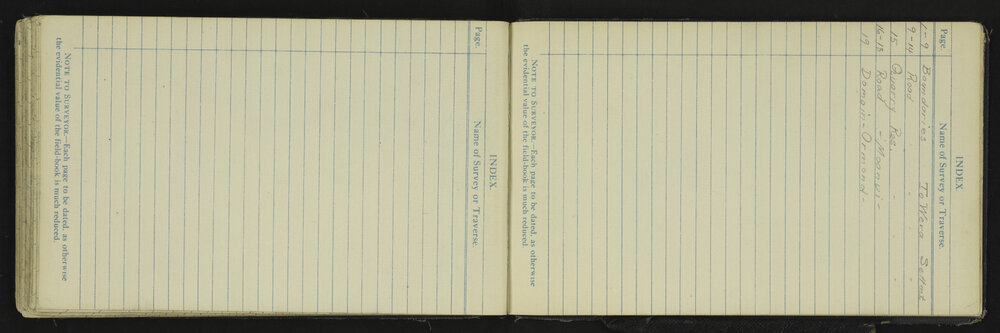 INDEX.
Page. Name of Survey or Traverse.
NOTE TO SURVEYOR.—Each page to be dated, as otherwise
the evidential value of the field-book is much reduced.
INDEX.
Page. Name of Survey or Traverse.
1-9 Boundaries Te Wera Settmt
9-14 Road " "
15 Quarry Res. " "
16-18 Road
19 Domain - Ormond -
NOTE TO SURVEYOR.—Each page to be dated, as otherwise
the evidential value of the field-book is much reduced.